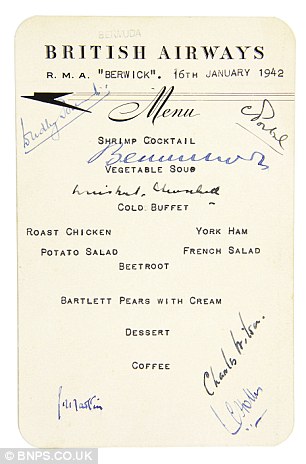 BERMUDA
BRITISH AIRWAYS
R. M. A. "BERWICK". 16TH JANUARY 1942
Menu
SHRIMP COCKTAIL
VEGETABLE SOUP
COLD BUFFET
ROAST CHICKEN YORK HAM
POTATO SALAD FRENCH SALAD
BEETROOT
BARTLETT PEARS WITH CREAM
DESSERT
COFFEE
Charles Wilson.
© BNPS.CO.UK